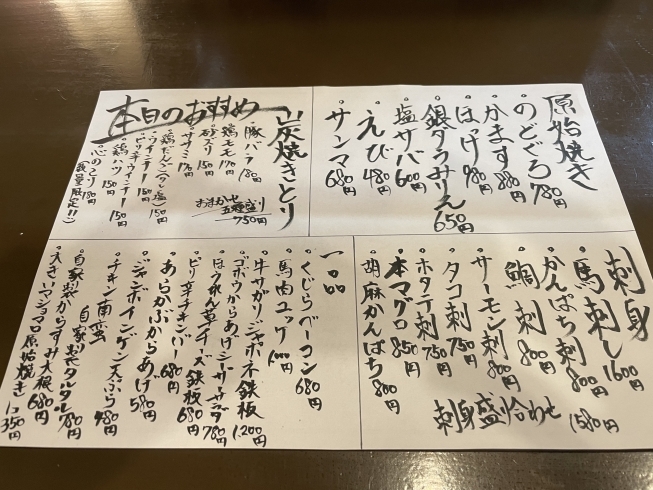 本日のおすすめ
炭焼きとり
豚バラ 180円
鶏モモ 170円
砂ズリ 150円
ササミ 170円
鶏だんご(タレ・塩) 150円
ウインナー 150円
ピリ辛ウインナー 150円
鶏ハツ 150円
心のこり 180円
(数量限定!!)
おまかせ
五種盛り
750円
原始焼き
のどぐろ 780円
かます 880円
ほっけ 980円
銀ダラみりん 650円
塩サバ 600円
えび 480円
サンマ 680円
刺身
馬刺し 1600円
かんぱち刺 800円
鯛刺 800円
サーモン刺 800円
タコ刺 750円
ホタテ刺 750円
本マグロ 850円
胡麻かんぱち 800円
刺身盛り合わせ 1580円
一品
くじらベーコン 680円
馬肉ユッケ
牛サガリジャポネ鉄板 1.200円
ゴボウからあげシーザーサラダ 780円
ほうれん草チーズ鉄板 680円
ピリ辛チキンバー 680円
あらかぶからあげ 580円
ジャンボインゲン天ぷら 480円
チキン南蛮
自家製タルタル 780円
自家製からすみ大根 680円
大きいマシュマロ原始焼き 1コ 350円